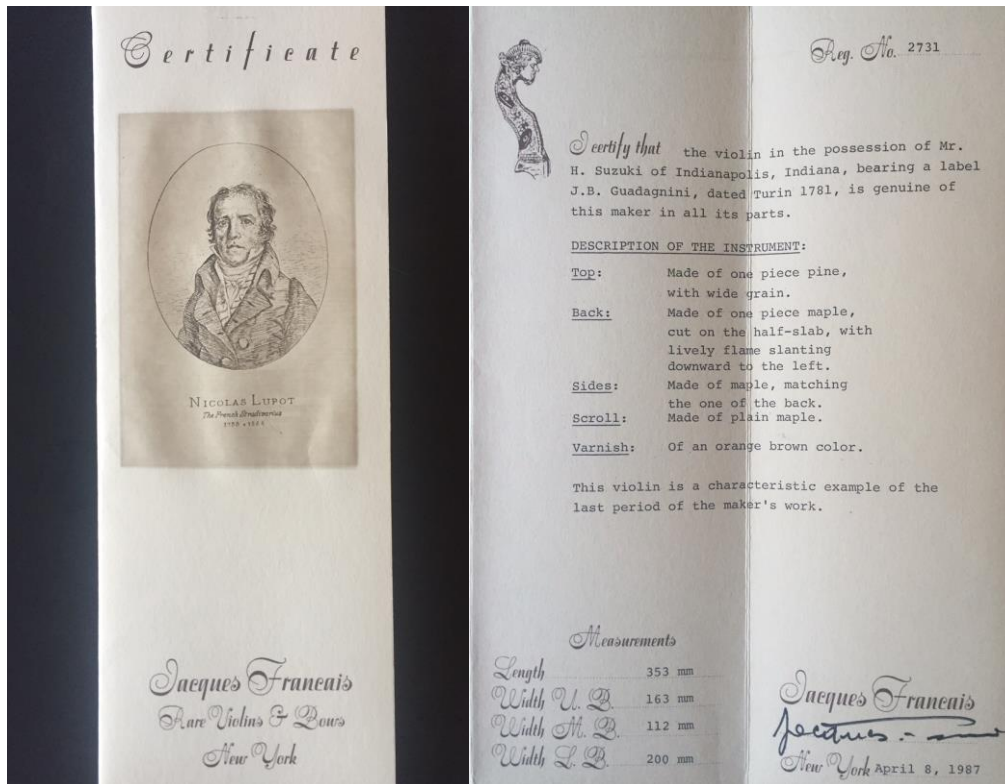 Certificate
NICOLAS LUPOT
The French Stradivarius
Jacques Francais
Rare Violins & Bows
New York
Reg. No. 2731
I certify that the violin in the possession of Mr.
H. Suzuki of Indianapolis, Indiana, bearing a label
J.B. Guadagnini, dated Turin 1781, is genuine of
this maker in all its parts.
DESCRIPTION OF THE INSTRUMENT:
Top: Made of one piece pine,
with wide grain.
Back: Made of one piece maple,
cut on the half-slab, with
lively flame slanting
downward to the left.
Sides: Made of maple, matching
the one of the back.
Scroll: Made of plain maple.
Varnish: Of an orange brown color.
This violin is a characteristic example of the
last period of the maker's work.
Measurements
Length 353 mm
Width U. B. 163 mm
Width M. B. 112 mm
Width L. B. 200 mm
Jacques Francais
New York April 8, 1987